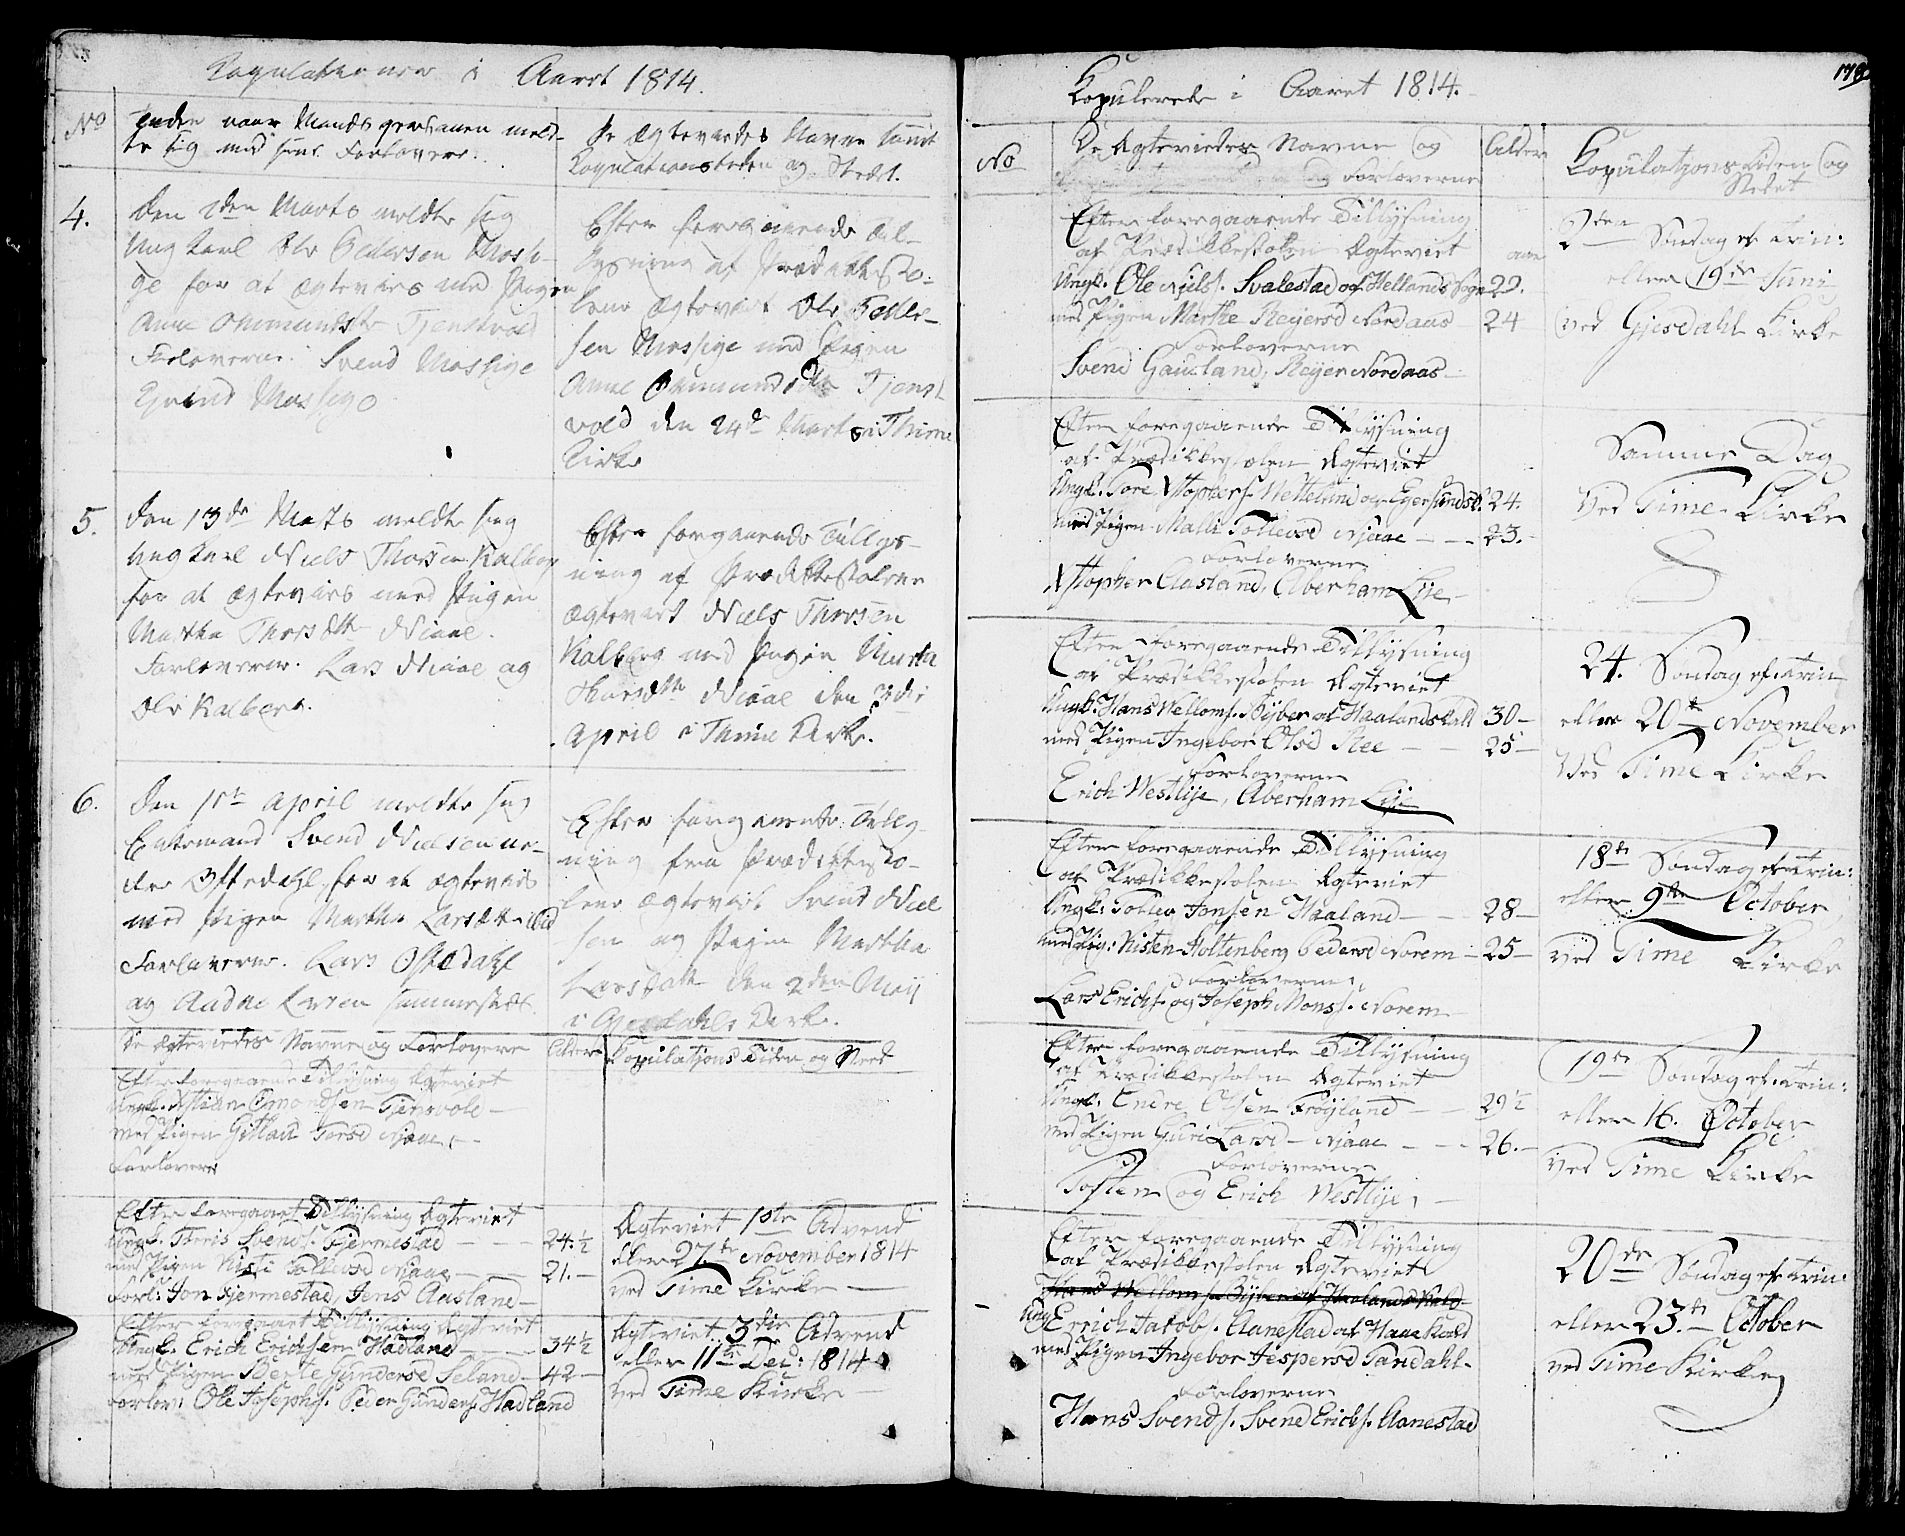 Copulationer i Aaret 1814.
No
Tiden naar Mandspersonen meld-
te sig med sine Forlovere.
De Ægteviedes Navne samt
Copulationstiden og Stedet.
4.
Den 2den Marts meldte sig
Ungkarl Ole Pedersen Mossi-
ge for at ægtevies med Pigen
Anne Ommundsdtr Tjensvold
Forloverne. Svend Mossige
Ejvind Mossige
Efter foregaaende Til-
lysning af Prædikesto-
lene ægteviet Ole Peder-
sen Mossige med Pigen
Anne Ommundsdtr Tjens-
vold den 24de Marts i Thime
Kirke
5.
Den 13de Marts meldte sig
Ungkarl Niels Thorsen Kalberg
for at ægtevies med Pigen
Martha Thorsdtr Niaae.
Forloverne. Lars Niaae og
Ole Kalberg.
Efter foregaaende Tillys-
ning af Prædikestolene
ægteviet Niels Thorsen
Kalberg med Pigen Martha
Thorsdtr Niaae den 3die
April i Thime Kirke.
6.
Den 11te April meldte sig
Enkemand Svend Nielsen ne-
dre Oftedahl, for at ægtevies
med Pigen Martha Larsdtr
Forloverne. Lars Oftedahl
og Aadne Larsen sammesteds.
Efter foregaaende Tillys-
ning fra Prædikesto-
lene ægteviet Svend Niel
sen og Pigen Martha
Larsdtr den 2den Maij
i Gjesdahls Kirke.
De Ægteviedes Navne og Forlovere
Alder
Copulations Tiden og Sted
Efter foregaaende Tillysning Ægteviet
Ungk. Xstian Omondsen Tjensvold —
med Pigen Gitlau Torsd Njaae, —
Forlovere
Efter foregaaet Tillysning Ægteviet
Ungk. Theris Svends. Fjermestad — 24.½
med Pigen Kisti Tollevsd Njaae — 21. —
Forl: Jon Fjermestad, Jens Aasland —
Ægteviet 1ste Advend
eller 27de November 1814
ved Time Kirke —
Efter foregaaet Tillysning Ægteviet
Ungk. Erich Erichsen Hadland — 34½
med Pigen Berte Gundersd Seland — 42 —
Forlov: Ole Josephs. Peder Gunders. Hadland
Ægteviet 3die Advend
eller 11te Dec: 1814
ved Time Kirke —
Kopulerede i Aaret 1814.
No
De Ægteviedes Navne og
og Forloverne
Alder
Kopulations Tiden og
Stedet
Efter foregaaende Tillysning
af Prædikkestolen Ægteviet
Ungk. Ole Niels. Svalestad af Hellands Sogn 29.
med Pigen Marthe Reijersd Nordaas 24
Forloverne
Svend Gausland, Reijer Nordaas —
2den Søndag ef Trin:
eller 19de Juni
ved Gjesdahl Kirke
Efter foregaaende Tillysning
af Prædikkestolen Ægteviet
Ungk. Tore Xstophers. Vetteland af Egersunds 24.
med Pigen Malli Tollevsd Njaae — — 23. —
Forloverne
Xstopher Aasland, Aberham Lÿe —
Samme Dag
ved Time Kirke
Efter foregaaende Tillysning
af Prædikkestolen Ægteviet
Ungk: Hans Velloms. Byber af Haalands Kald 30 —
med Pigen Ingebor Olsd Ree — — 25 —
Forloverne
Erich Vestlÿe, Aberham Lÿe
24. Søndag ef: Trin
eller 20de November
ved Time Kirke
Efter foregaaende Tillysning
af Prædikkestolen Ægteviet
Ungk: Tollev Jonsen Haaland — — 28 —
med Pig: Kisten Holtenberg Pedersd Norem — 25 —
Forloverne
Lars Erichs. og Joseph Mons. Norem —
18de Søndag ef Trin:
eller 9de October
ved Time Kirke
Efter foregaaende Tillysning
af Prædikkestolen Ægteviet
Ungk: Endre Olsen Frøyland — — 29½
med Pigen Guri Larsd — Njaae — — 26. —
Forloverne
Tosten og Erich Vestlÿe, —
19de Søndag ef: Trin:
eller 16. October
ved Time Kirke
Efter foregaaende Tillysning
af Prædikkestolen Ægteviet
Hans Velloms. Byber af Haalands Kald
Ungk Errich Jacobs. Aanestad af Haae Kald
med Pigen Ingebor Jespersd Tandahl —
Forloverne
Hans Svends. Svend Erichs. Aanestad
20de Søndag ef Trin:
eller 23. October
ved Time Kirke